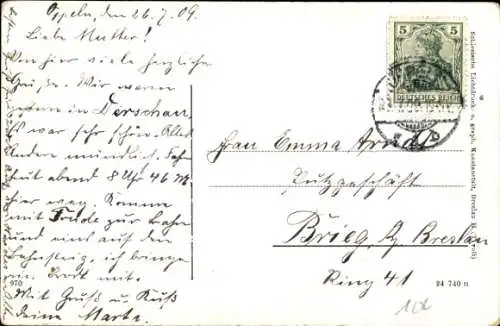 Oppeln, den 26.7.09.
Liebe Mutter!
Von hier viele herzliche
Grüße. Wir waren
gestern in Derschau,
Es war sehr schön. Alles
Andere mündlich.
heut abend 8 Uhr 46 M
hier weg. Komme
mit Trude zur Bahn
und auf den
Bahnsteig, ich bringe
ein Brot mit.
Mit Gruß u. Kuß
Deine Marta.
5 5
DEUTSCHES REICH
Frau Emma
Putzgeschäft
Brieg, Bz Breslau
Ring 41
970
24 740 n
Schlesische Lichtdruck- u. graph. Kunstanstalt, Breslau